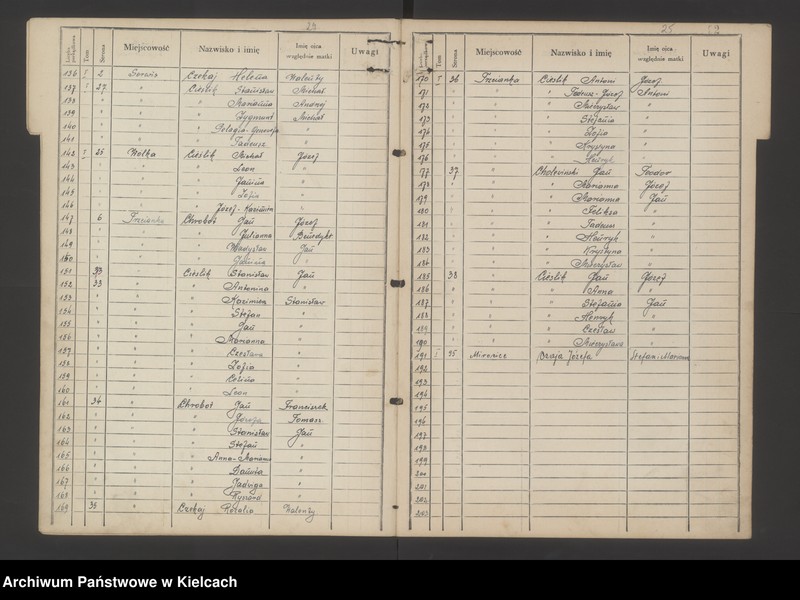 24
Liczba porządkowa Tom Strona Miejscowość Nazwisko i imię Imię ojca względnie matki Uwagi
136 I 2 Czekaj Helena Walenty
137 " 27 " Cieślik Stanisław Michał
138 " " " " Marianna Andrzej
139 " " " " Zygmunt Michał
140 " " " " Pelagia-Genowefa "
141 " " " " Tadeusz "
142 I 25 Wolka Cieślik Michał Józef
143 " " " " Leon "
144 " " " " Janina "
145 " " " " Zofia "
146 " " " " Józef-Kazimierz "
147 " 6 Trzcianka Chrobot Jan Józef
148 " " " " Julianna Benedykt
149 " " " " Władysław Jan
150 " " " " Janina "
151 " 33 " Cieślik Stanisław Jan
152 " 33 " " Antonina "
153 " " " " Kazimiera Stanisław
154 " " " " Stefan "
155 " " " " Jan "
156 " " " " Marianna "
157 " " " " Czesława "
158 " " " " Zofia "
159 " " " " Celina "
160 " " " " Leon "
161 " 34 " Chrobot Jan Franciszek
162 " " " " Tomasz
163 " " " " Stanisław Jan
164 " " " " Stefan "
165 " " " " Anna-Marianna "
166 " " " " Danuta "
167 " " " " Jadwiga "
168 " " " " Ryszard "
169 " 35 " Czekaj Rozalia Walenty
25
Liczba porządkowa Tom Strona Miejscowość Nazwisko i imię Imię ojca względnie matki Uwagi
170 I 36 Trzcianka Cieślik Antoni Józef
171 " " " " Tadeusz-Józef Antoni
172 " " " " Mieczysław "
173 " " " " Stefania "
174 " " " " Zofia "
175 " " " " Krystyna "
176 " " " " Henryk "
177 " 37 " Cholewiński Jan Teodor
178 " " " " Marianna Józef
179 " " " " Marianna Jan
180 " " " " Feliksa "
181 " " " " Tadeusz "
182 " " " " Henryk "
183 " " " " Krystyna "
184 " " " " Mieczysław "
185 " 38 " Cieślik Jan Józef
186 " " " " Anna "
187 " " " " Stefania Jan
188 " " " " Henryk "
189 " " " " Czesław "
190 " " " " Mieczysława "
191 I 95 Mironice Czaja Józefa Stefan i Marianna
192
193
194
195
196
197
198
199
200
201
202
203
Archiwum Państwowe w Kielcach